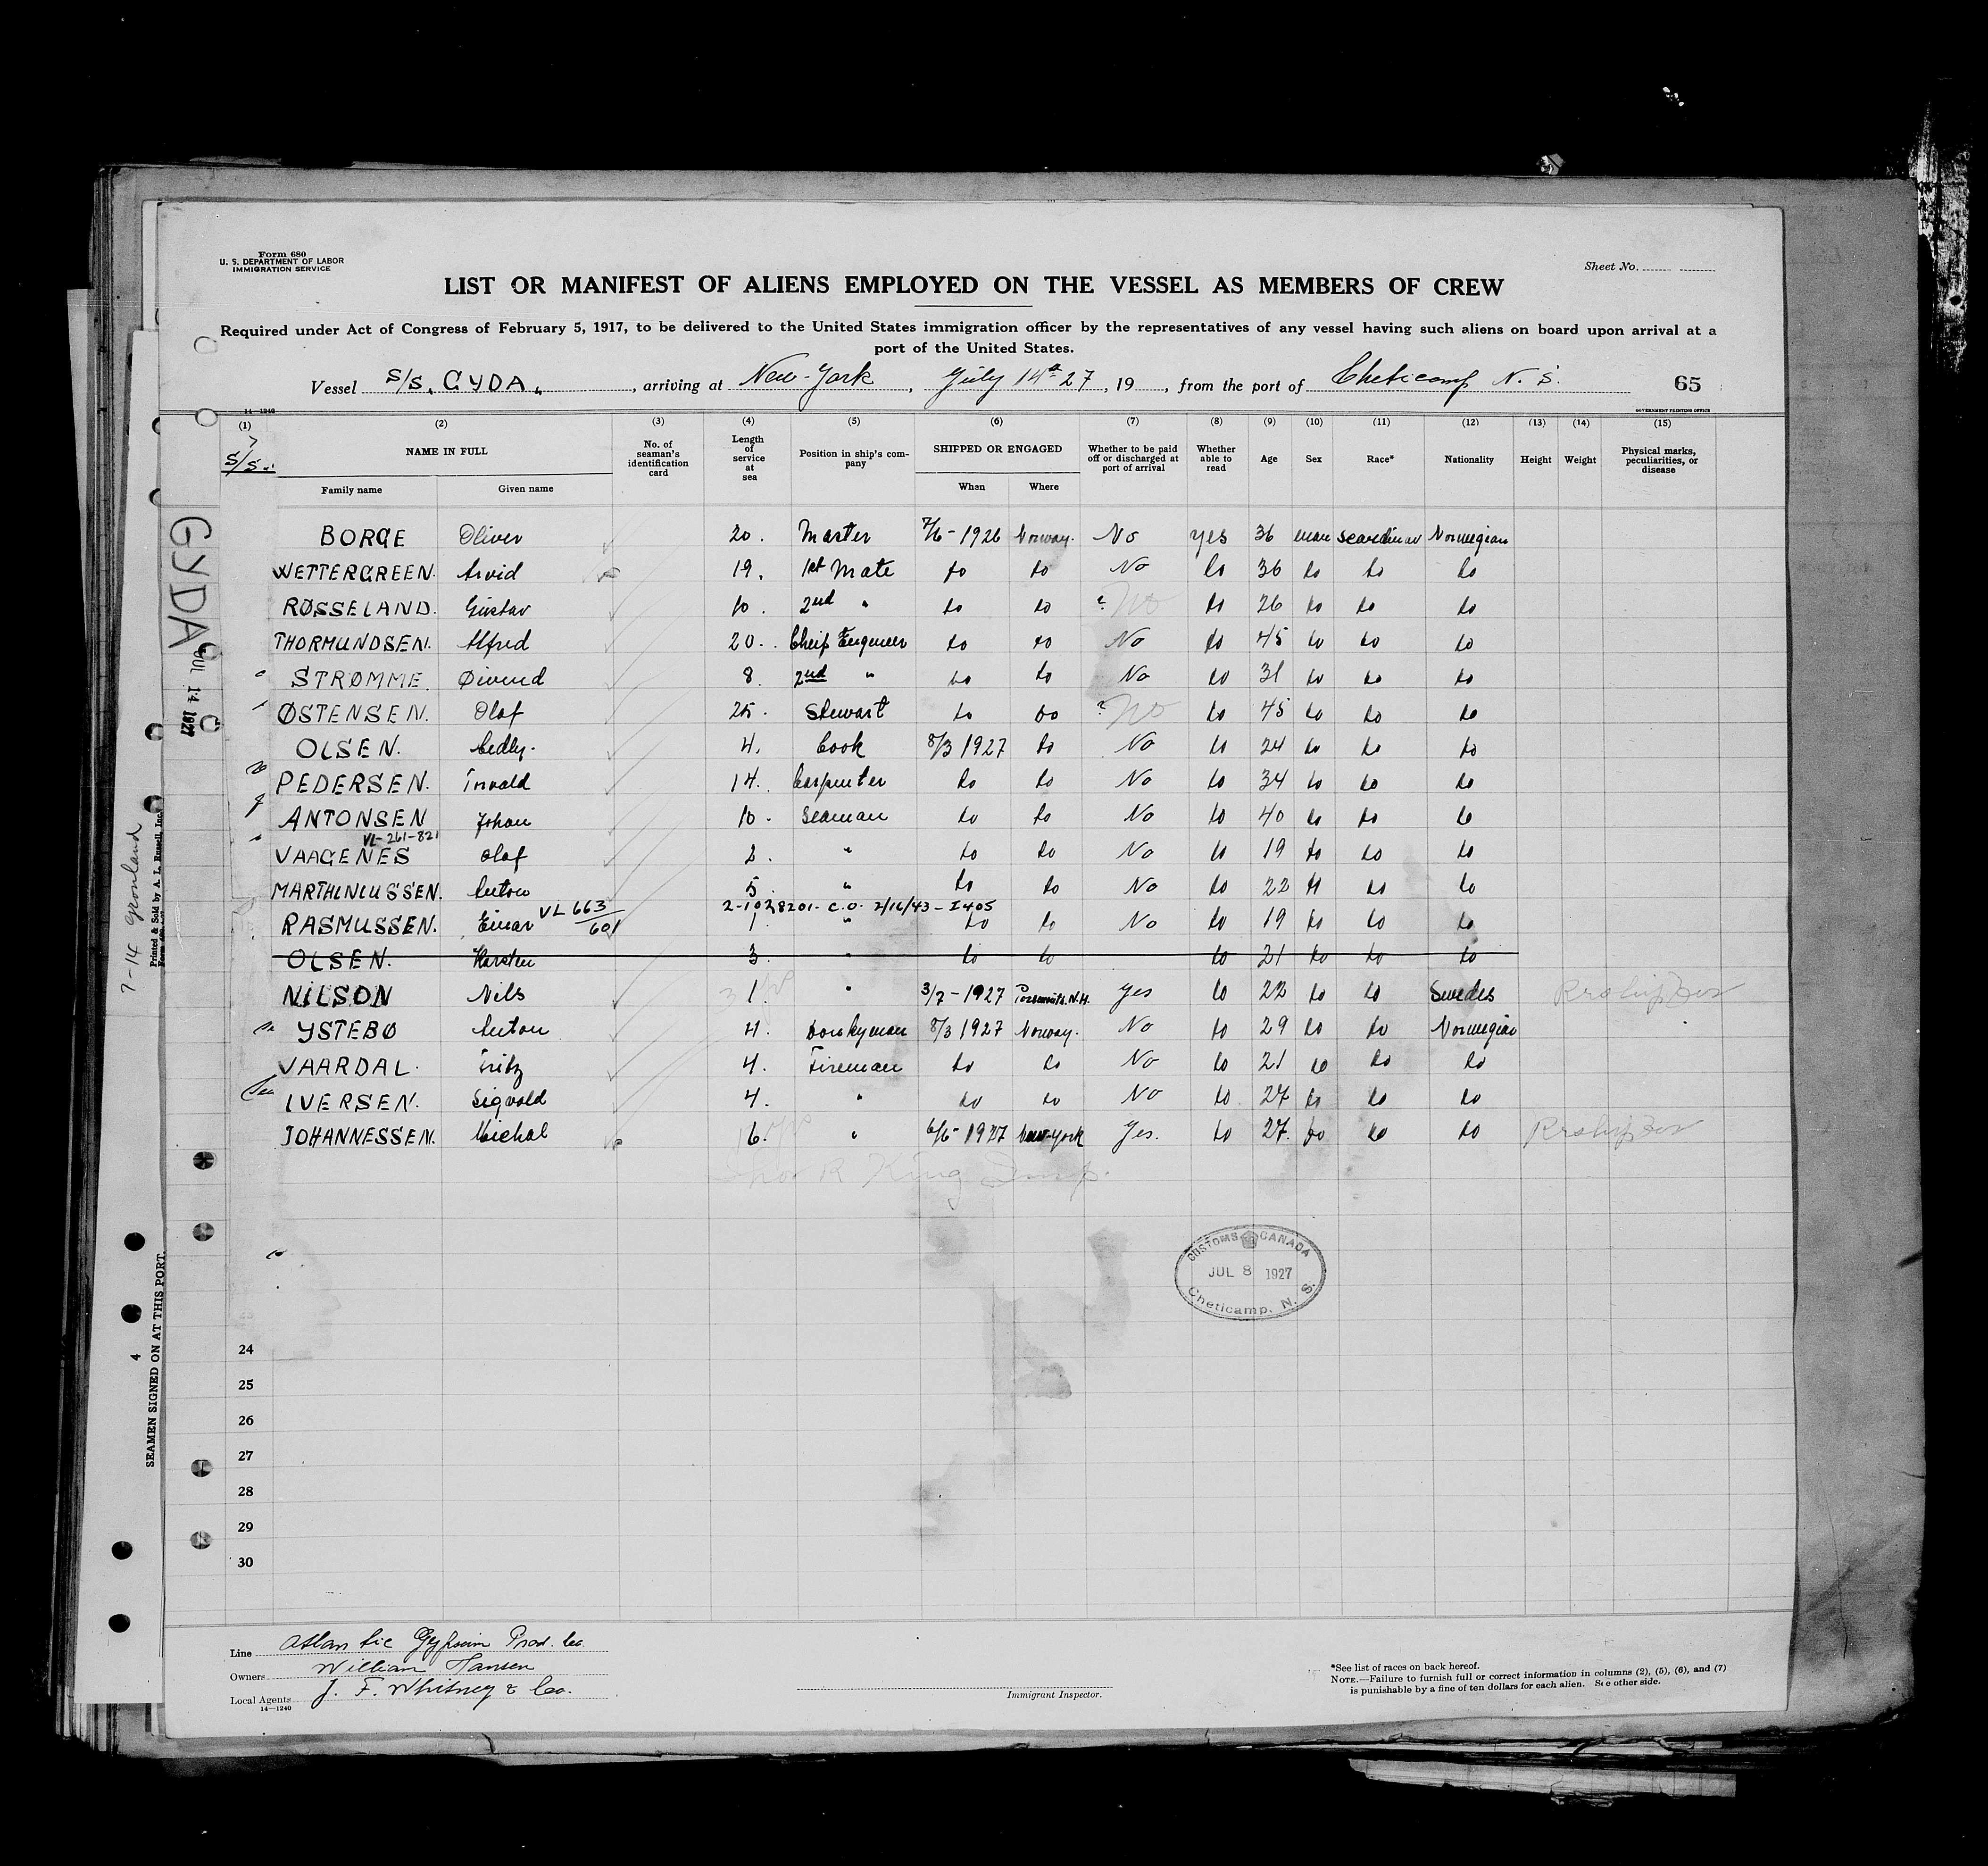 Form 680
U. S. DEPARTMENT OF LABOR
IMMIGRATION SERVICE
Sheet No.
LIST OR MANIFEST OF ALIENS EMPLOYED ON THE VESSEL AS MEMBERS OF CREW
Required under Act of Congress of February 5, 1917, to be delivered to the United States immigration officer by the representatives of any vessel having such aliens on board upon arrival at a
port of the United States.
Vessel S/S. GYDA., arriving at New-York, July 14th 27, 19 , from the port of Cheticamp N. S. 65
14—1240
GOVERNMENT PRINTING OFFICE
(1) (2) (3) (4) (5) (6) (7) (8) (9) (10) (11) (12) (13) (14) (15)
S/S. NAME IN FULL No. of seaman's identification card Length of service at sea Position in ship's company SHIPPED OR ENGAGED Whether to be paid off or discharged at port of arrival Whether able to read Age Sex Race* Nationality Height Weight Physical marks, peculiarities, or disease
Family name Given name When Where
BORGE Oliver 20. Master 7/6-1926 Norway. No yes 36 man Norwegian
WETTERGREEN. Arvid 19. 1st Mate do do No do 36 do do do
RØSSELAND. Gustav 10. 2nd " do do ? No do 26 do do do
THORMUNDSEN. Alfred 20. Cheif Engineer do do No do 45 do do do
STRØMME. Øivind 8. 2nd " do do No do 31 do do do
ØSTENSEN. Olaf 25. Stewart do do ? No do 45 do do do
OLSEN. 4. Cook 8/3 1927 do No do 24 do do do
PEDERSEN. 14. Carpenter do do No do 34 do do do
ANTONSEN Johan 10. Seaman do do No do 40 do do do
VL-261-821
VAAGENES Olaf 2. " do do No do 19 do do do
MARTHINIUSSEN. Anton 5. " do do No do 22 do do do
2-1028201. C.O. 2/16/43-I405
RASMUSSEN. Einar VL 663/601 1. " do do No do 19 do do do
OLSEN. Karsten 3. " do do do 21 do do do
NILSON Nils 1. " 3/7-1927 Yes do 22 do do Swedes
YSTEBØ Anton 4. Donkyman 8/3 1927 Norway. No do 29 do do Norwegian
VAARDAL. Fritz 4. Fireman do do No do 21 do do do
IVERSEN. Sigvald 4. " do do No do 27 do do do
JOHANNESSEN. Michal 16. " 6/5-1927 New-York Yes. do 27. do do do
King Insp.
CUSTOMS CANADA
JUL 8 1927
Cheticamp, N. S.
24
25
26
27
28
29
30
Line Atlantic Gypsum Prod. Co.
Owners William Hansen
Local Agents J. F. Whitney & Co.
14—1240
Immigrant Inspector.
*See list of races on back hereof.
NOTE.—Failure to furnish full or correct information in columns (2), (5), (6), and (7)
is punishable by a fine of ten dollars for each alien. See other side.
GYDA
JUL 14 1927
7-14 Gronland
Printed & Sold by A. L. Russell, Inc.
SEAMEN SIGNED ON AT THIS PORT.
4